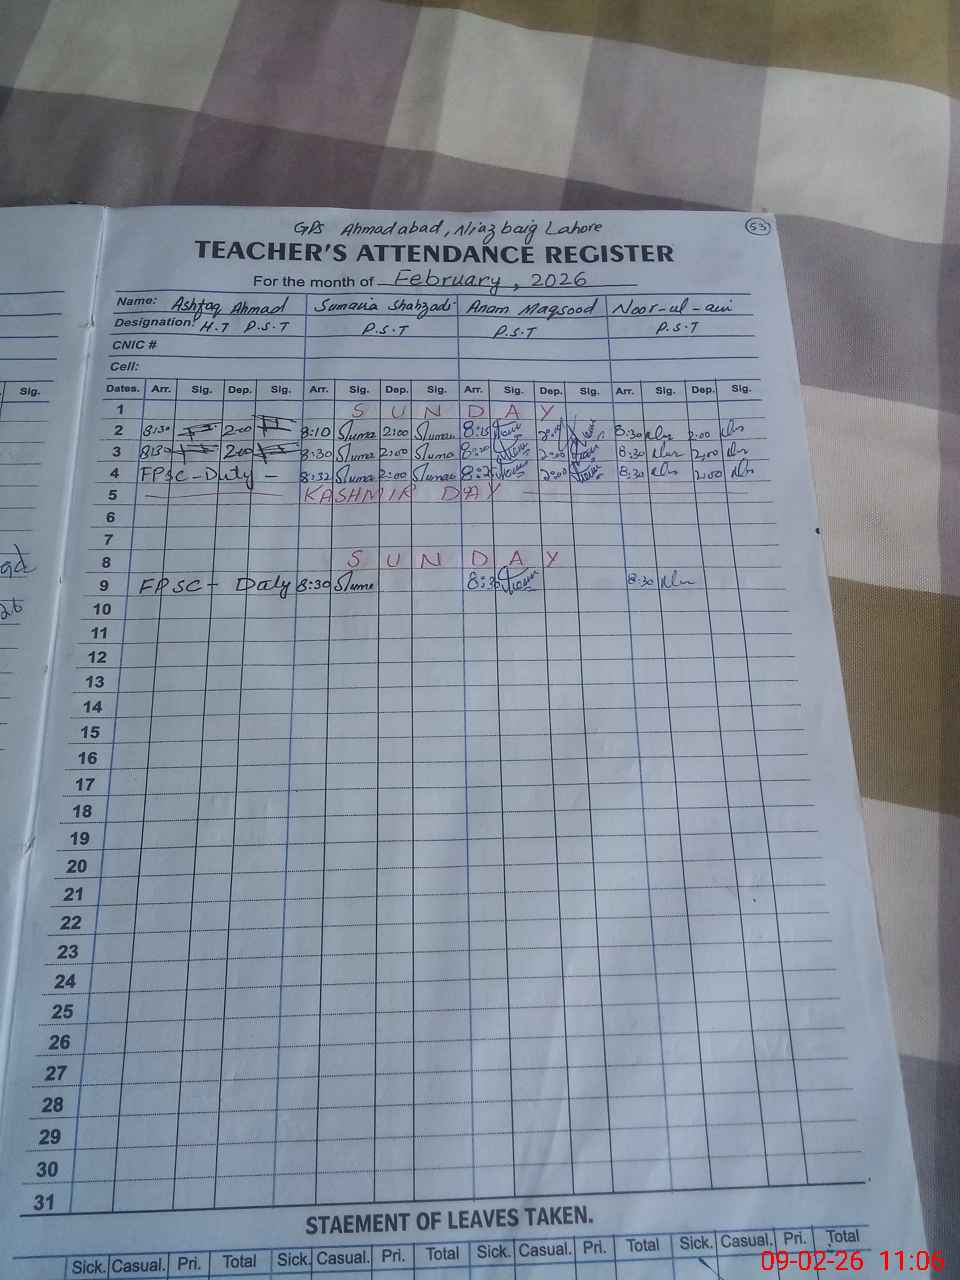 GPS Ahmadabad, Niaz baig Lahore
53
TEACHER'S ATTENDANCE REGISTER
For the month of February, 2026
Name: Ashfaq Ahmad Sumaira Shahzadi Anam Maqsood Noor-ul-ain
Designation: H.T P.S.T P.S.T P.S.T P.S.T
CNIC #
Cell:
Sig. Dates. Arr. Sig. Dep. Sig. Arr. Sig. Dep. Sig. Arr. Sig. Dep. Sig. Arr. Sig. Dep. Sig.
1 SUNDAY
2 8:30 2:00 8:10 2:00 8:15 2:00 8:30 2:00
3 8:30 2:00 8:30 2:00 8:30 2:00
4 FPSC - Duty - 8:32 2:00 8:25 2:00 8:30 2:00
5 KASHMIR DAY
6
7
8 SUNDAY
9 FPSC - Duty 8:30 8:30 8:30
10
11
12
13
14
15
16
17
18
19
20
21
22
23
24
25
26
27
28
29
30
31
STAEMENT OF LEAVES TAKEN.
Sick. Casual. Pri. Total Sick. Casual. Pri. Total Sick. Casual. Pri. Total Sick. Casual. Pri. Total
09-02-26 11:06